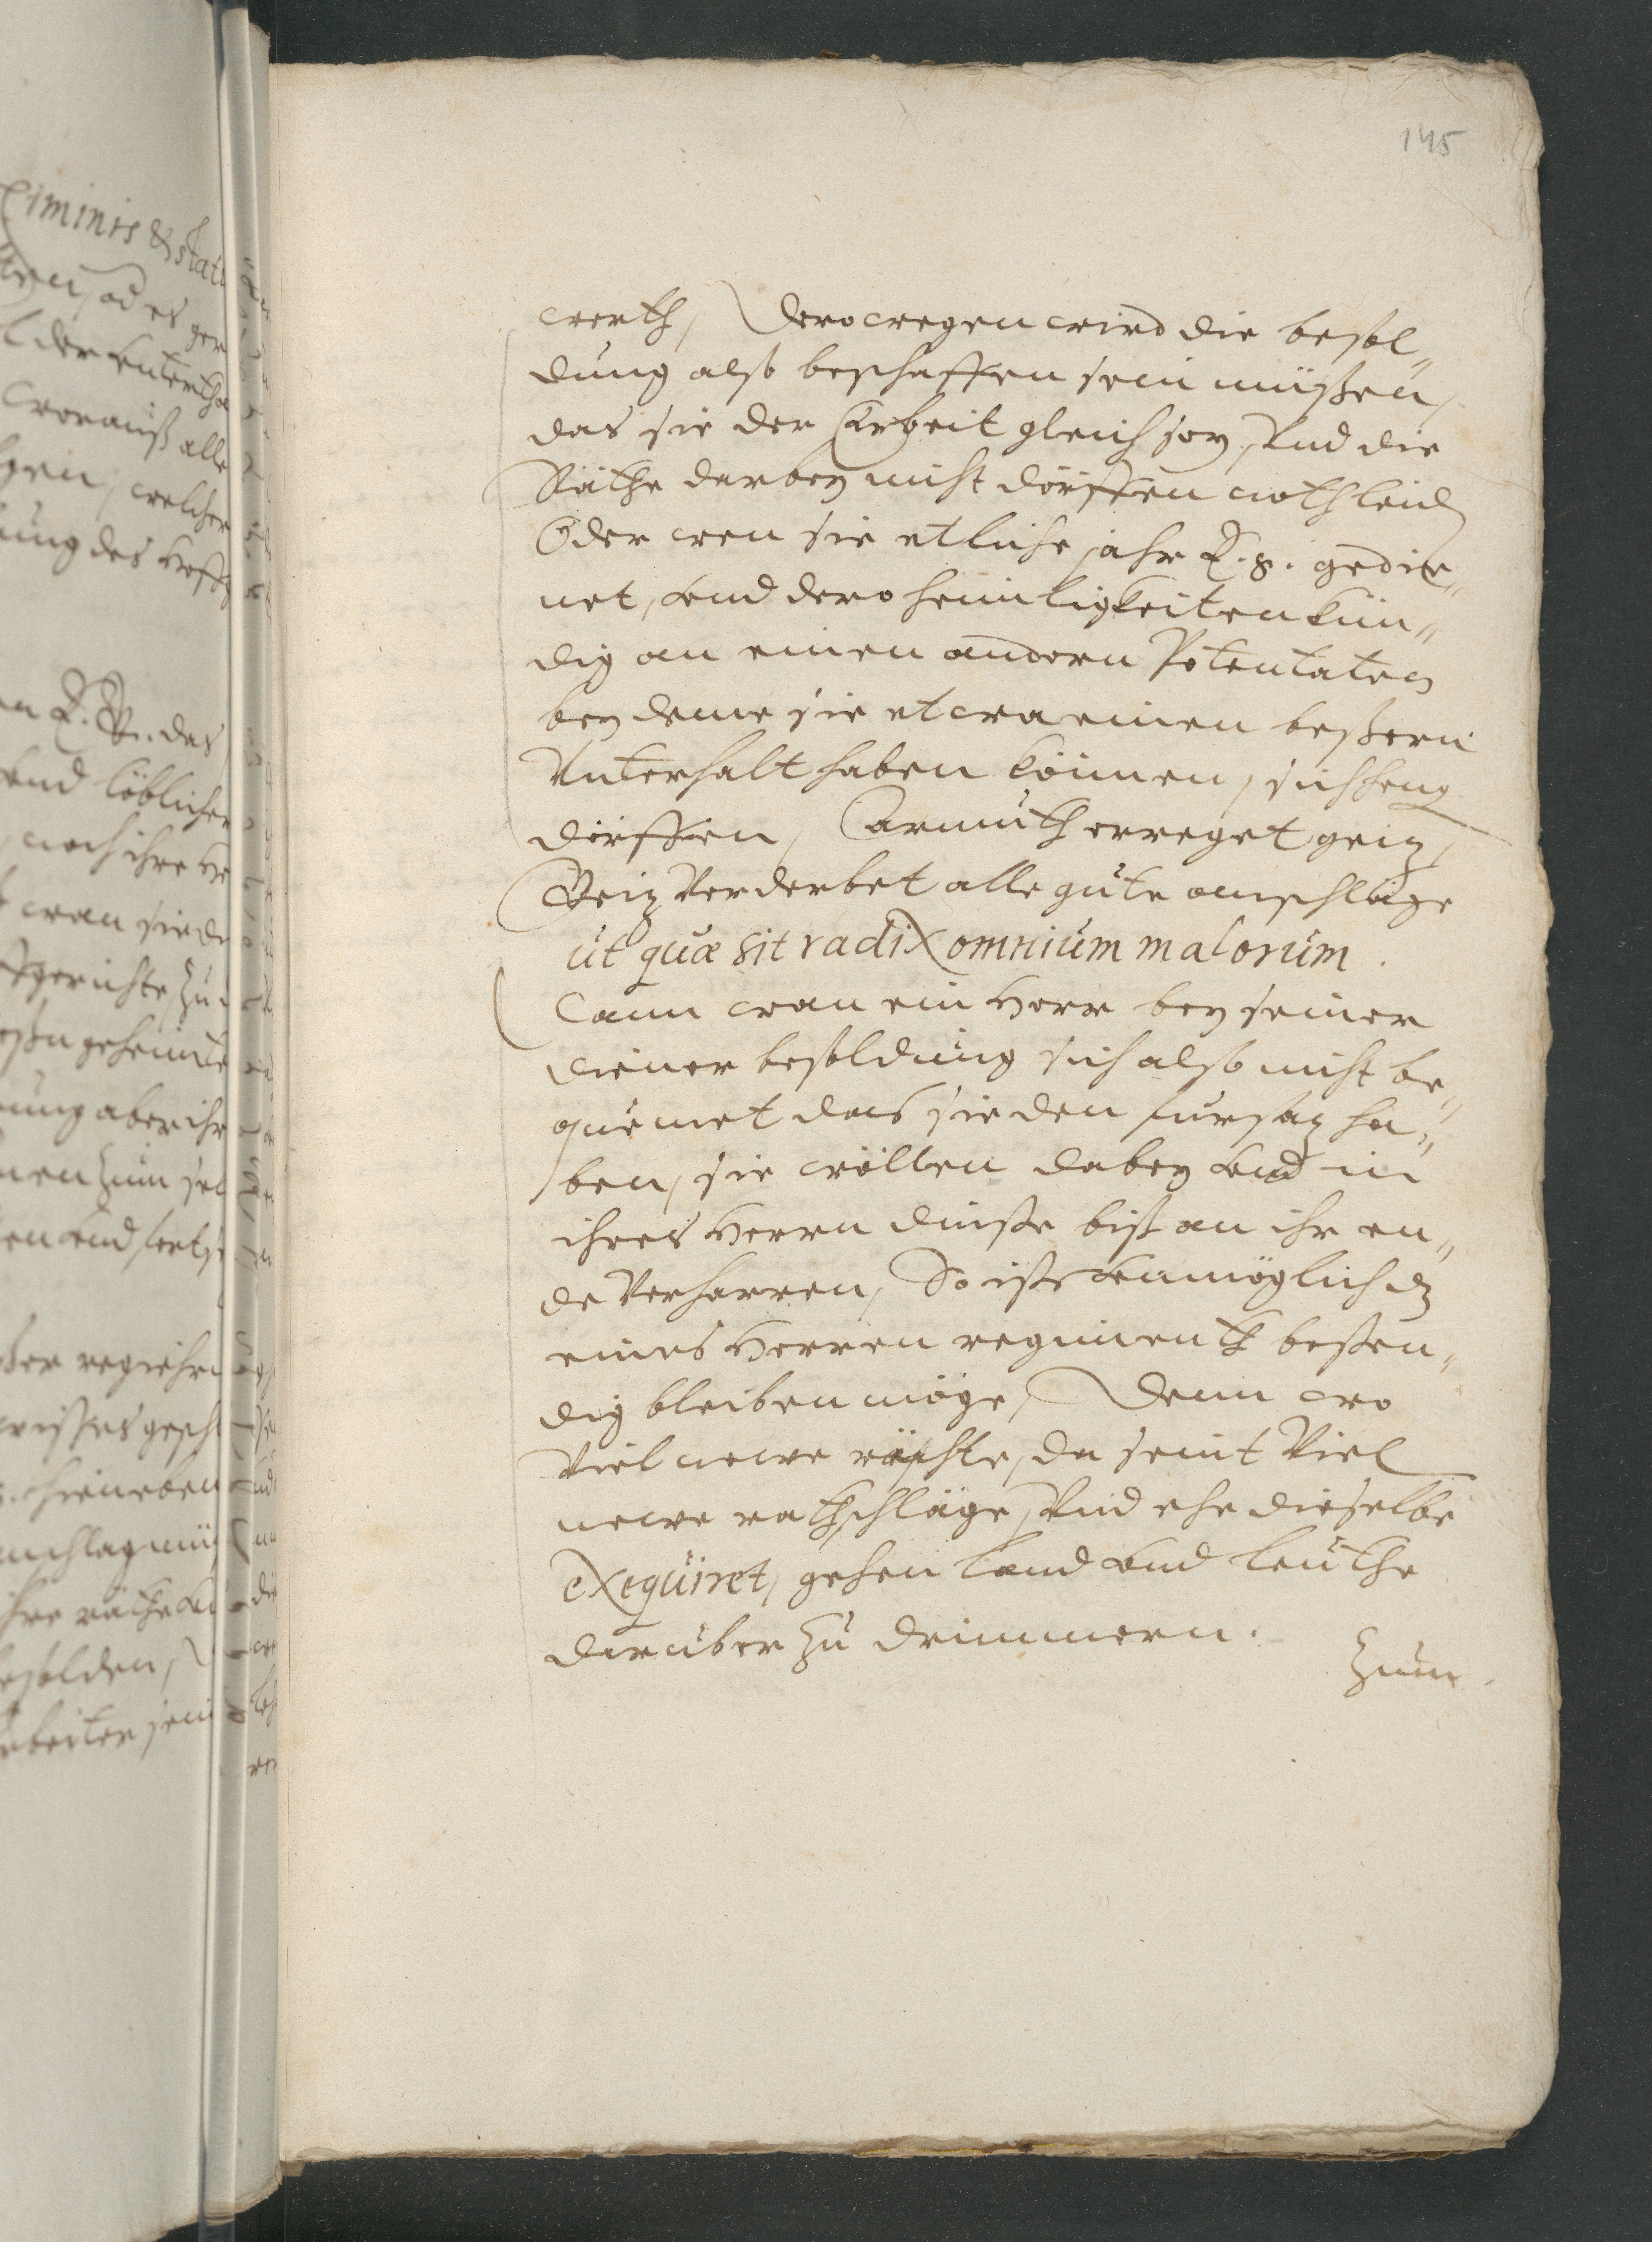 145
werth, Derowegen wird die besol„
dung also beschaffen sein müßen,
das sie der Arbeit gleich sey, Vnd die
Räthe darbey nicht dörffen noth leid
Oder wen sie etliche jahr E. g. gedie„
net, vnd dero heimligkeiten kün„
dig an einen andern Potentaten
bey deme sie etwa einen beßern
Vnterhalt haben können, sich heng
dörffen, Armuth erreget geiz,
Geiz Verderbet alle gute anschläge
ut quæ sit radix omnium malorum.
Dann wan ein Herr bey seiner
diener besoldung sich also nicht be„
quemet das sie den fursaz ha„
ben, sie wöllen dabey vnd in
ihres Herrn dinste biß an ihr en„
de Verharren, So ists vnmöglich dz
eines Herren regiments besten„
dig bleiben möge, Denn wo
Viel newe räthe, da seint Viel
newe rathschläge, Vnd ehe dieselbe
exequiret, gehen land vnd leuthe
daruber zu drimmern.
Zum